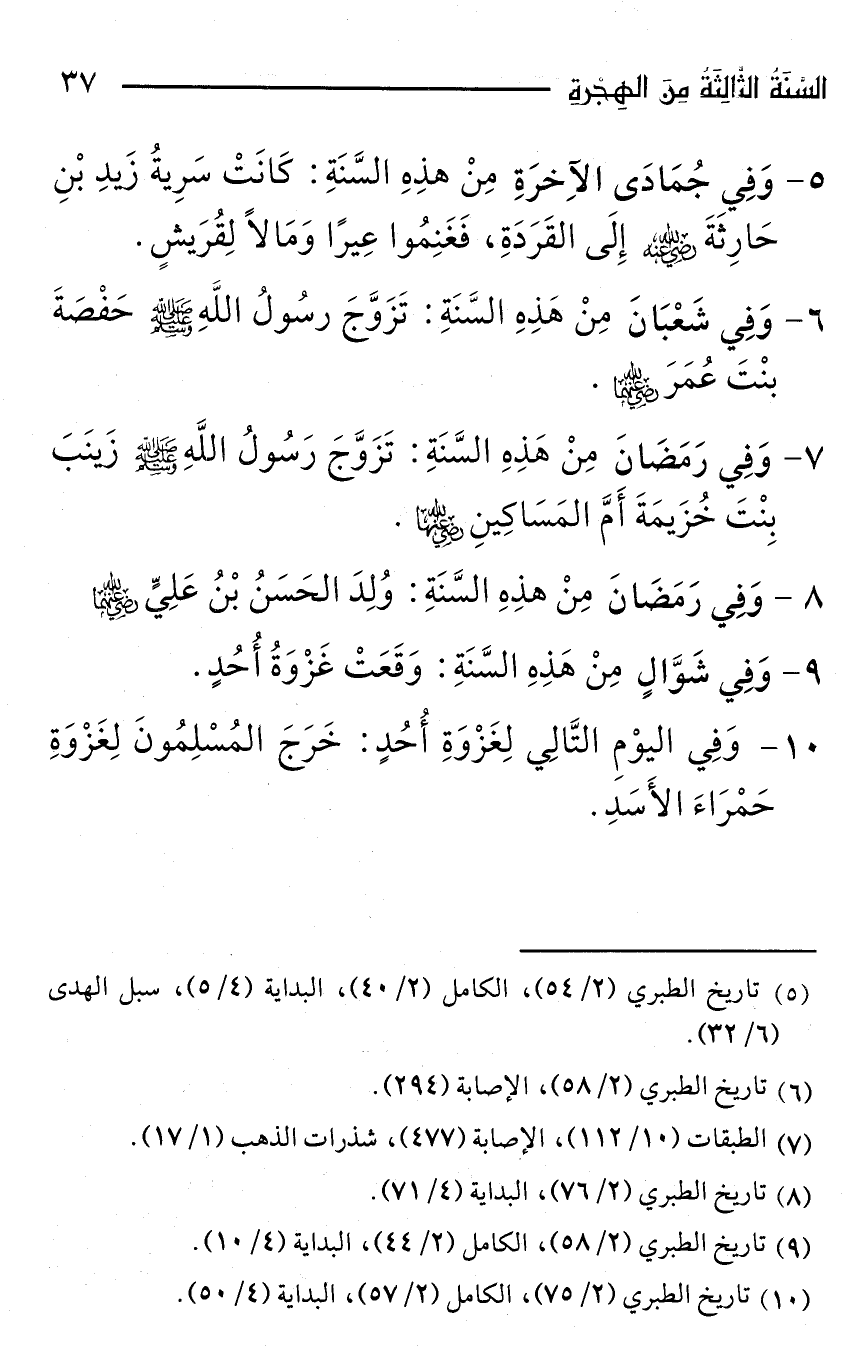 السَّنَةُ الثَّالِثَةُ مِنَ الهِجْرةِ ٣٧
٥- وَفِي جُمَادَى الآخِرَةِ مِنْ هذِهِ السَّنَةِ: كَانَتْ سَرِيةُ زَيدِ بْنِ
حَارِثَةَ رضي الله عنه إِلَى القَرَدَةِ، فَغَنِمُوا عِيرًا وَمَالاً لِقُرَيشٍ.
٦- وَفِي شَعْبَانَ مِنْ هَذِهِ السَّنَةِ: تَزَوَّجَ رسُولُ اللَّهِ ﷺ حَفْصَةَ
بنْتَ عُمَرَ رضي الله عنهما .
٧- وَفِي رَمَضَانَ مِنْ هَذِهِ السَّنَةِ: تَزَوَّجَ رَسُولُ اللَّهِ ﷺ زَينَبَ
بِنْتَ خُزَيمَةَ أَمَّ المَسَاكِينِ رضي الله عنها .
٨- وَفِي رَمَضَانَ مِنْ هذِهِ السَّنَةِ: وُلِدَ الحَسَنُ بْنُ عَلِيٍّ رضي الله عنهما
٩- وَفِي شَوَّالٍ مِنْ هَذِهِ السَّنَةِ: وَقَعَتْ غَزْوَةُ أُحُدٍ.
١٠- وَفِي اليوْمِ التَّالِي لِغَزْوَةِ أُحُدٍ: خَرَجَ المُسْلِمُونَ لِغَزْوَةِ
حَمْرَاءَ الأَسَدِ.
(٥) تاريخ الطبري (٢/ ٥٤)، الكامل (٢/ ٤٠)، البداية (٤/ ٥)، سبل الهدى
(٦/ ٣٢).
(٦) تاريخ الطبري (٢/ ٥٨)، الإصابة (٢٩٤).
(٧) الطبقات (١٠/ ١١٢)، الإصابة (٤٧٧)، شذرات الذهب (١/ ١٧).
(٨) تاريخ الطبري (٢/ ٧٦)، البداية (٤/ ٧١).
(٩) تاريخ الطبري (٢/ ٥٨)، الكامل (٢/ ٤٤)، البداية (٤/ ١٠).
(١٠) تاريخ الطبري (٢/ ٧٥)، الكامل (٢/ ٥٧)، البداية (٤/ ٥٠).